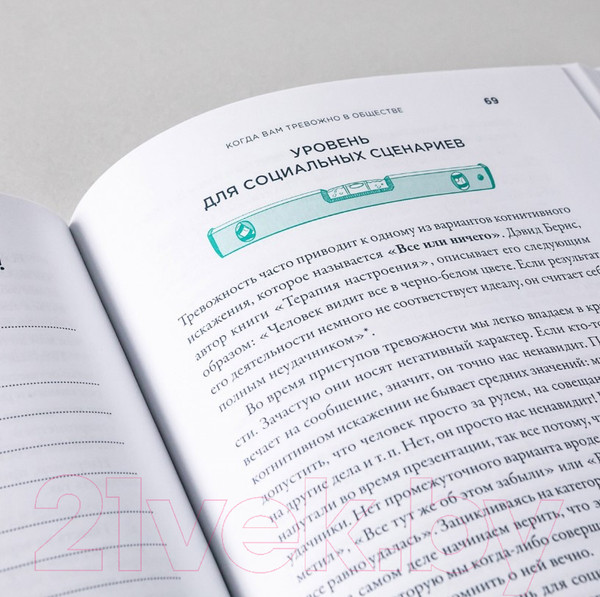 КОГДА ВАМ ТРЕВОЖНО В ОБЩЕСТВЕ
69
УРОВЕНЬ
ДЛЯ СОЦИАЛЬНЫХ СЦЕНАРИЕВ
Тревожность часто приводит к одному из вариантов когнитивного
искажения, которое называется «Все или ничего». Дэвид Бернс,
автор книги «Терапия настроения», описывает его следующим
образом: «Человек видит все в черно-белом цвете. Если результат
его деятельности немного не соответствует идеалу, он считает себя
полным неудачником»*.
Во время приступов тревожности мы легко впадаем в
сти. Зачастую они носят негативный характер. Если кто-то
вечает на сообщение, значит, он точно нас ненавидит.
когнитивном искажении не бывает средних значений:
допустить, что человек просто за рулем, на совещании
на другие дела и т. п. Нет, он просто нас ненавидит!
напутали во время презентации, так все потому,
удачники. Нет промежуточного варианта вроде
метил», «Все тут же об этом забыли» или
все равно удалась». Зацикливаясь на
самом деле начинаем верить, что
которую мы когда-либо
помнить о ней вечно.
21vek.by